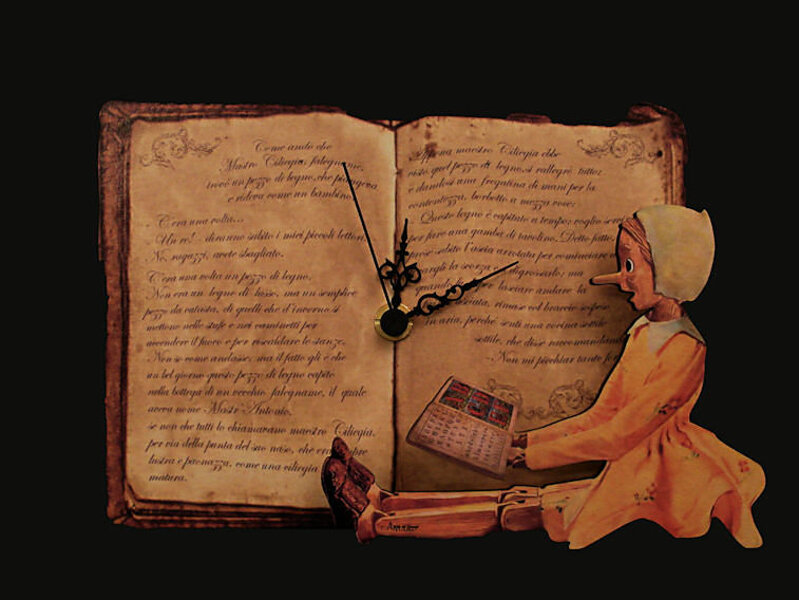 Come andò che
Mastro Ciliegia, falegname,
trovò un pezzo di legno, che piangeva
e rideva come un bambino.
C'era una volta...
- Un re! - diranno subito i miei piccoli lettori.
No, ragazzi, avete sbagliato.
C'era una volta un pezzo di legno.
Non era un legno di lusso, ma un semplice
pezzo da catasta, di quelli che d'inverno si
mettono nelle stufe e nei caminetti per
accendere il fuoco e per riscaldare le stanze.
Non so come andasse, ma il fatto gli è che
un bel giorno questo pezzo di legno capitò
nella bottega di un vecchio falegname, il quale
aveva nome Mastr'Antonio,
se non che tutti lo chiamavano maestro Ciliegia,
per via della punta del suo naso, che era sempre
lustra e paonazza, come una ciliegia
matura.
Appena maestro Ciliegia ebbe
visto quel pezzo di legno, si rallegrò tutto;
e dandosi una fregatina di mani per la
contentezza, borbottò a mezza voce:
- Questo legno è capitato a tempo; voglio
per fare una gamba di tavolino. Detto fatto,
prese subito l'ascia arrotata per cominciare
a levargli la scorza e a digrossarlo; ma
quando fu lì per lasciare andare la
ascciata, rimase col braccio sospeso
in aria, perché sentì una vocina sottile
sottile, che disse raccomandandosi
- Non mi picchiar tanto